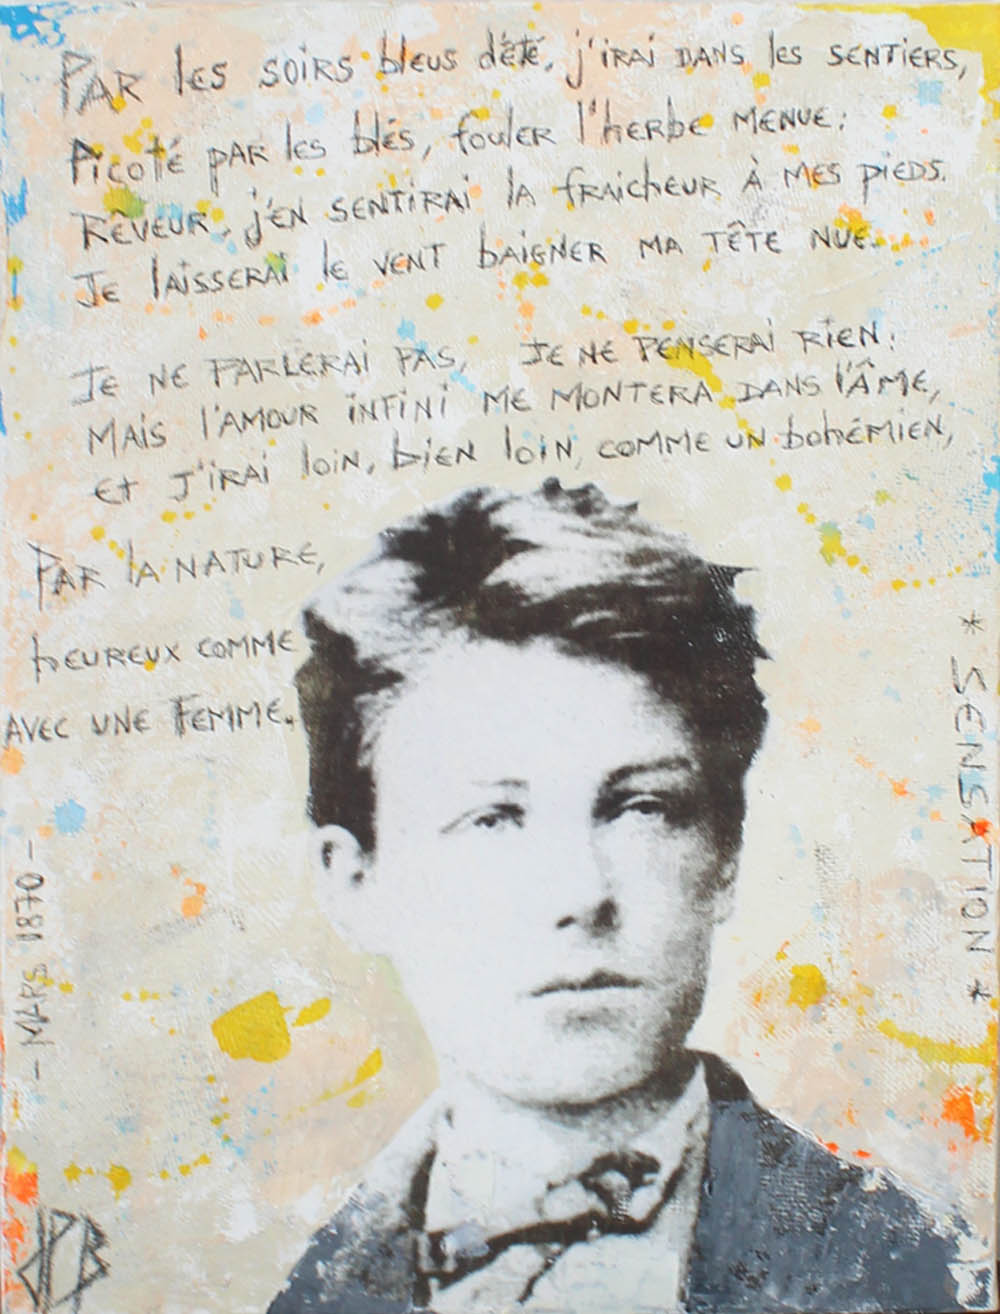 PAR les soirs bleus d'été, j'irai dans les sentiers,
Picoté par les blés, fouler l'herbe menue:
Rêveur, j'en sentirai la fraicheur à mes pieds.
Je laisserai le vent baigner ma tête nue...
Je ne parlerai pas, Je ne penserai rien:
Mais l'amour infini me montera dans l'âme,
et j'irai loin, bien loin, comme un bohémien,
Par la nature,
heureux comme
avec une femme.
* SENSATION *
- MARS 1870 -
JCB